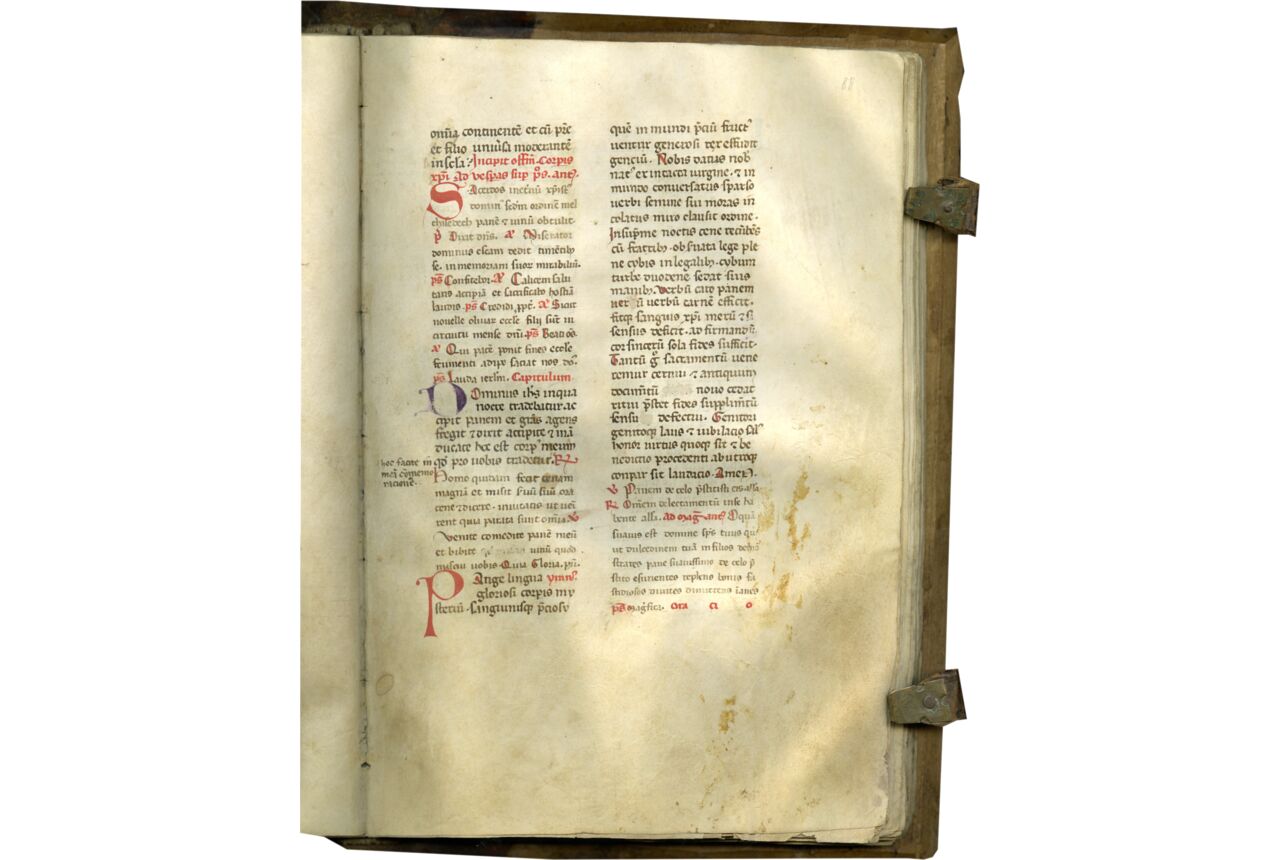 68
om̄ia continentē et cū p̄re
et filio uniūsa moderantē
in scl̄a. Incipit offm̄. Corpis
xp̄i Ad vesp̄as sup p̄s. ant̄.
Sacerdos inet̄nū xp̄ist᷒
domin᷒ sedm̄ ordinē mel
chisedech panē ⁊ uinū obtulit.
p̄ Dixit dn̄s. A Miserator
dominus escam dedit timētib᷒
se. in memoriam suor mirabiliū.
ps̄ Confitebor. A Calicem salu
taris accipiā et sacrificabo hostiā
laudis. ps̄ Credidi ꝓpt̄. A Sicut
nouelle oliuar eccl̄e filii sūt in
circuitu mense dn̄i. ps̄ Beati oēs.
A Qui pacē ponit fines eccl̄e
frumenti adipe saciat nos dn̄s.
ps̄ Lauda ierl̄m. Capitulum
Dominus ih̄s in qua
nocte tradebatur. ac
cipit panem et grās agens
fregit ⁊ dixit accipite ⁊ mā
ducate hoc est corp᷒ meum
qd̄ pro uobis tradetur. R
hoc facite in
meā cōmemo
rationē.
Homo quidam fecit cenam
magnā et misit ẜuū suū ora
cene dicere. inuitatis ut uēi
rent quia parata sunt om̄ia. V
Venite comedite panē meū
et bibite uinū quod
miscui uobis. Quia Gloria. p̄ri.
Pange lingua ymn᷒.
gloriosi corpis my
steriū. Sanguinisq̨ p̄ciosi
quē in mundi p̄ciū fruct᷒
ventris generosi rex effudit
genciū. Nobis datus nob̄
nat᷒ ex intacta uirgine. ⁊ in
mundo conuersatus sparso
uerbi semine sui moras in
colatus miro clausit ordine.
In sup̄me noctis cene recūbēs
cū fratrib᷒. obẜuata lege ple
ne cobis in legalib᷒. cobum
turbe duodene se dat suis
manib᷒. Verbū caro panem
uer ū uerbū carnē efficit.
fitq̨ sanguis xp̄i merū ⁊ si
sensus deficit. ad firmandū
cor sincerū sola fides sufficit.
Tantū g̊ sacramentū uene
remur cernui ⁊ antiquum
documētū nouo cedat
ritui p̄stet fides supplimētū
sensu defectui. Genitori
genitoq̨ laus ⁊ iubilacio sal᷒
honor uirtus quoq̨ sit ⁊ be
nedictio procedenti ab utroq̨
conpar sit laudacio. Amen.
V Panem de celo p̄stitisti eis. alla
R Om̄em delectamentū in se ha
bente alla. Ad mag̅. ant̄. O quā
suauis est domine sp̄s tuus qui
ut dulcedinem tuā in filios demō
strares pane suauissimo de celo p̄
stito esurientes reples bonis fa
stidiosos diuites dimittens ināes
ps̄ Mag̅ficat. Ora ci o